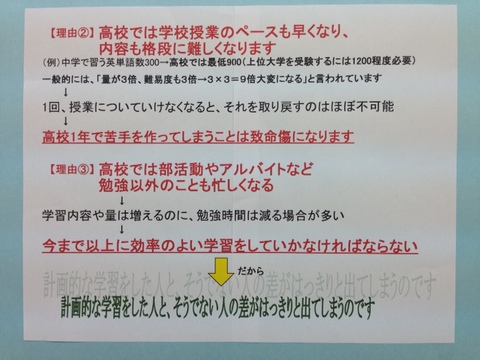 【理由②】高校では学校授業のペースも早くなり、
内容も格段に難しくなります
(例)中学で習う英単語数300→高校では最低900(上位大学を受験するには1200程度必要)
一般的には、「量が3倍、難易度も3倍→3×3=9倍大変になる」と言われています
↓
1回、授業についていけなくなると、それを取り戻すのはほぼ不可能
↓
高校1年で苦手を作ってしまうことは致命傷になります
【理由③】高校では部活動やアルバイトなど
勉強以外のことも忙しくなる
↓
学習内容や量は増えるのに、勉強時間は減る場合が多い
↓
今まで以上に効率のよい学習をしていかなければならない
だから
計画的な学習をした人と、そうでない人の差がはっきりと出てしまうのです